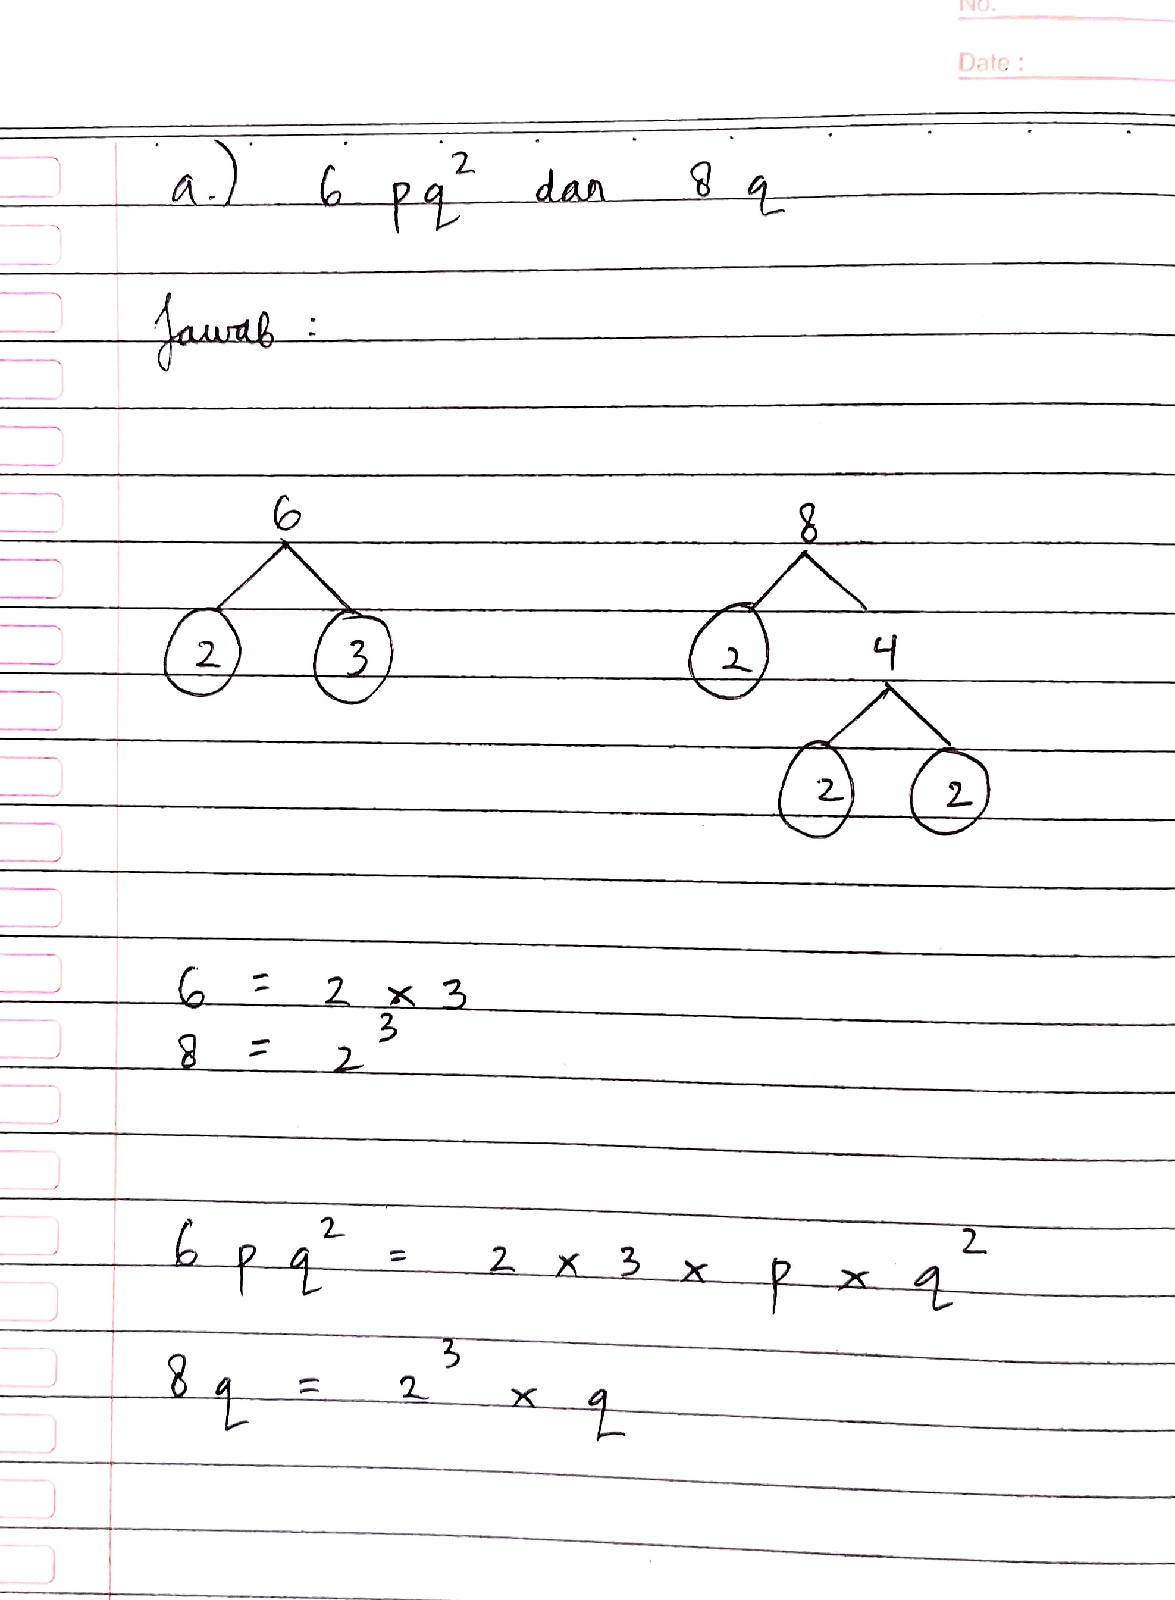 No.
Date :
a.) 6 pq² dan 8 q
Jawab :
6 8
2 3 2 4
2 2
6 = 2 × 3
8 = 2³
6 p q² = 2 × 3 × p × q²
8 q = 2³ × q